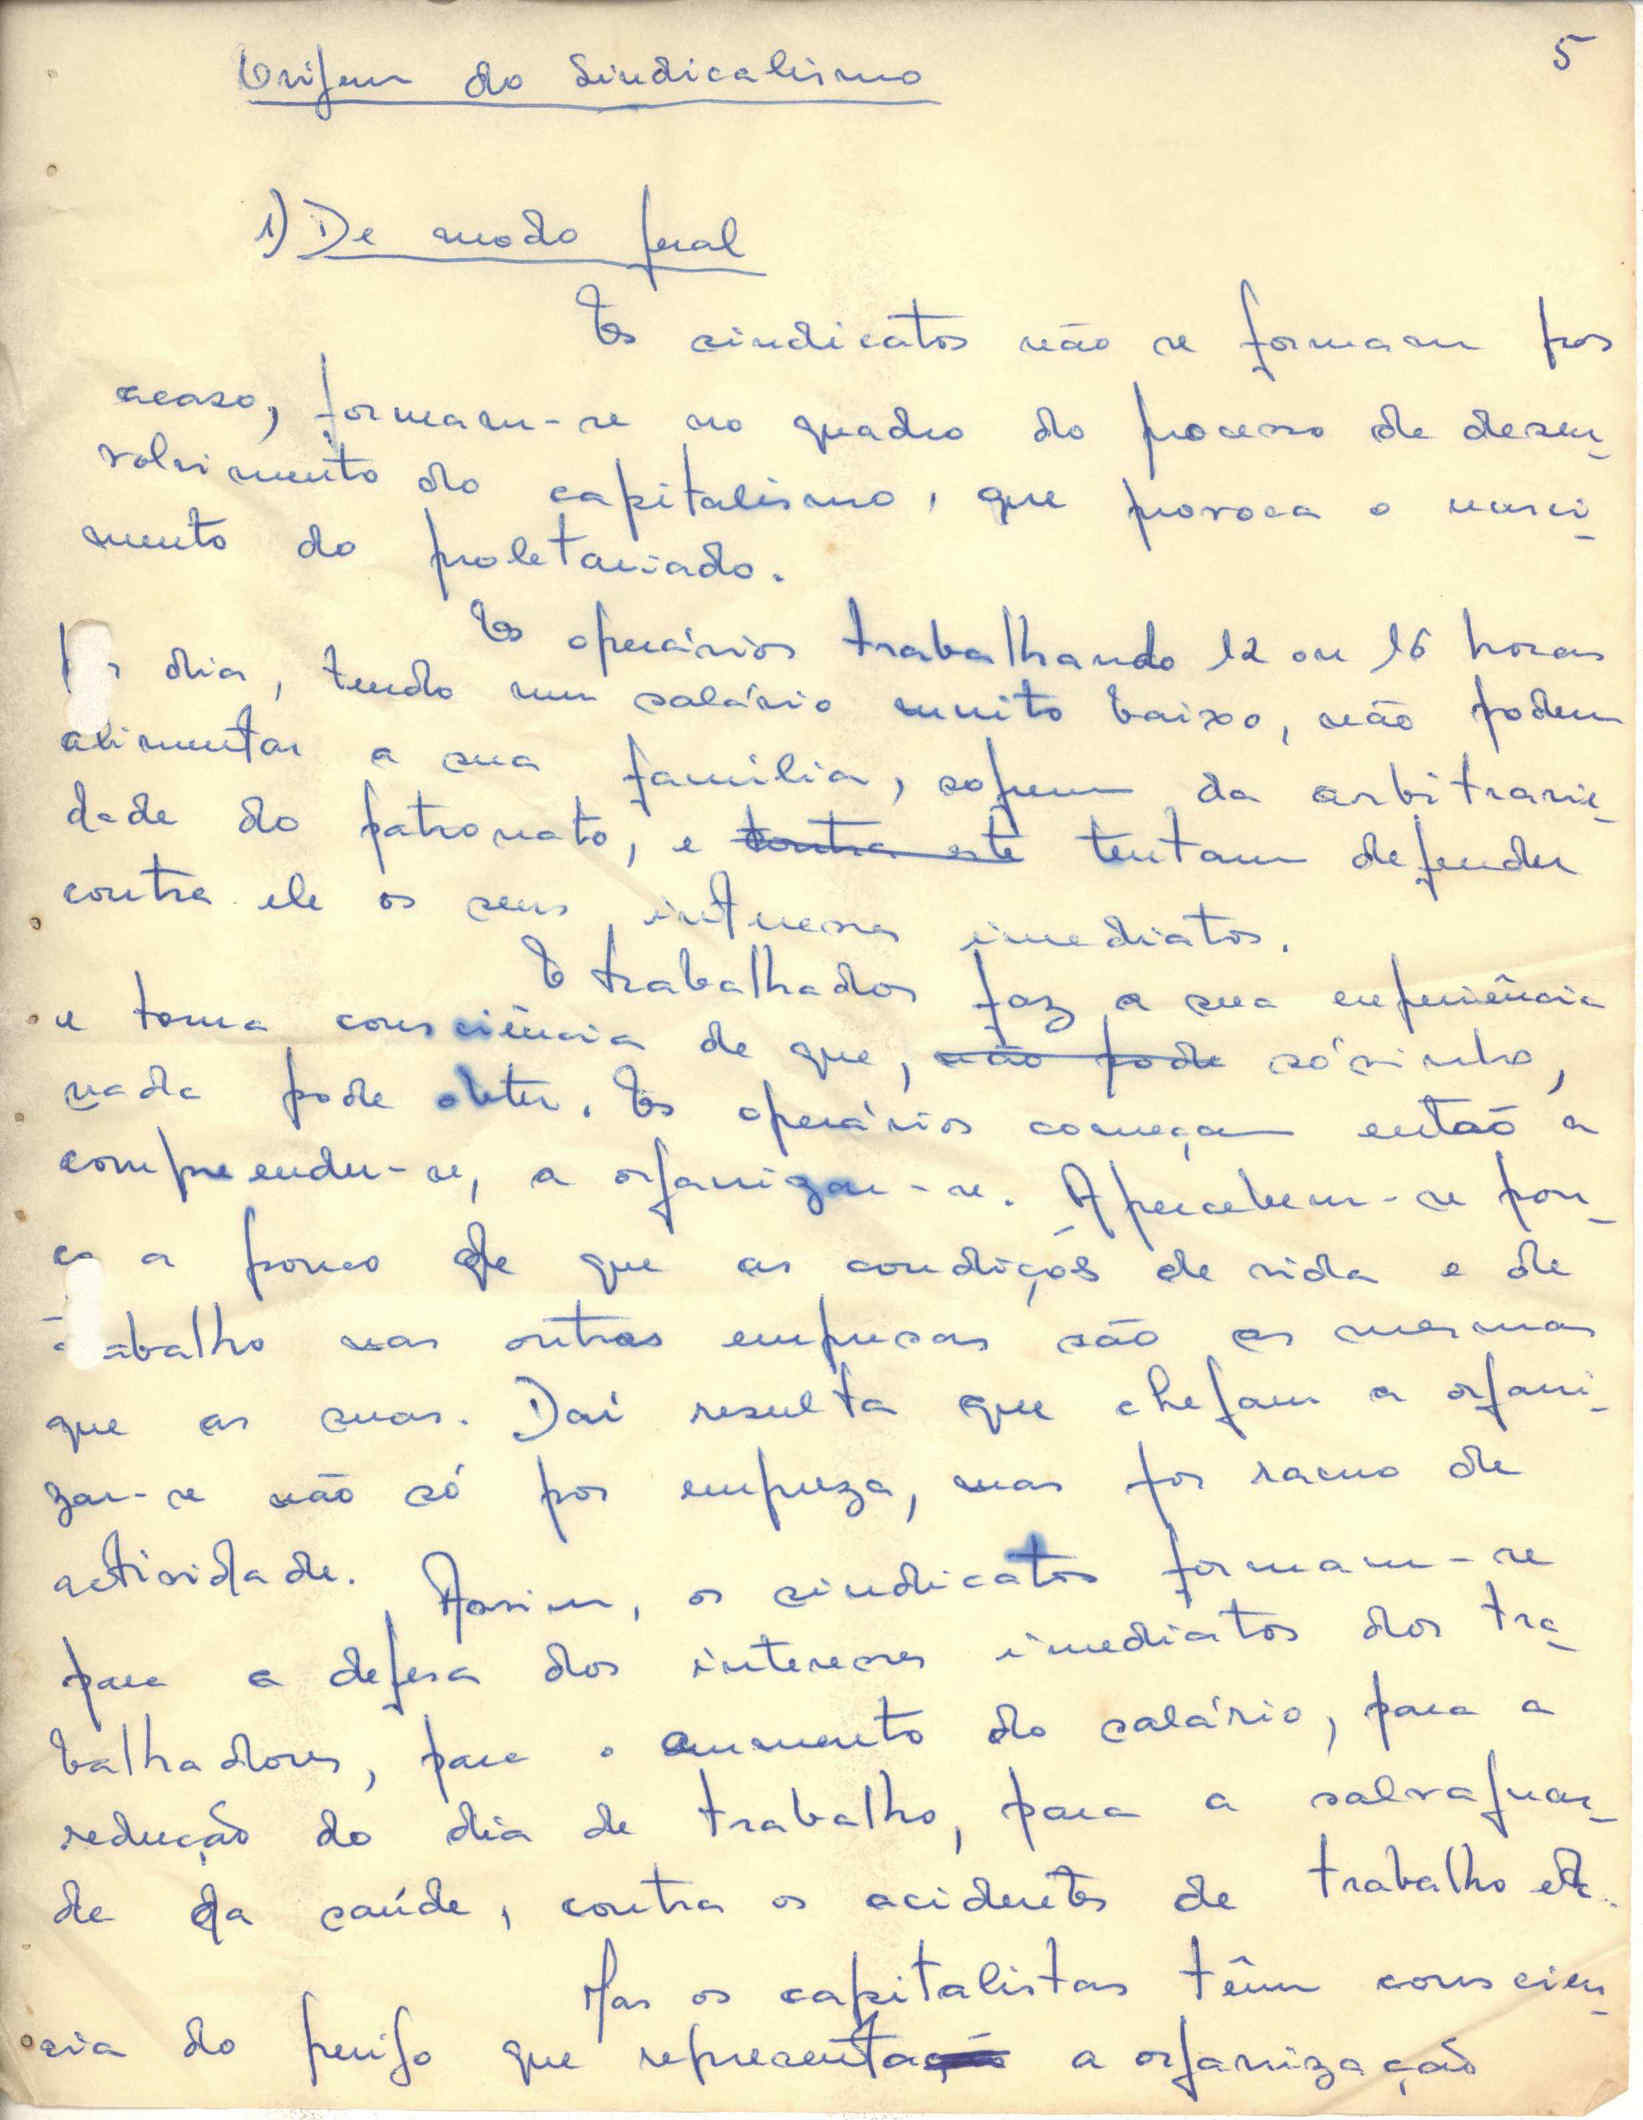 5
Origem do Sindicalismo
1) De modo geral
Os sindicatos não se formam por
acaso, formam-se no quadro do processo de desen-
volvimento do capitalismo, que provoca o nasci-
mento do proletariado.
Os operários trabalhando 12 ou 16 horas
dia, tendo um salário muito baixo, não podem
alimentar a sua família, sofrem da arbitrarie-
dade do patronato, e contra este tentam defender
contra ele os seus interesses imediatos.
O trabalhador faz a sua experiência
e toma consciência de que, não pode sózinho,
nada pode obter. Os operários começam então a
compreender-se, a organizar-se. Apercebem-se pou-
co a pouco de que as condições de vida e de
trabalho nas outras empresas são as mesmas
que as suas. Daí resulta que chegam a organi-
zar-se não só por empreza, mas por ramo de
actividade. Assim, os sindicatos formam-se
para a defesa dos interesses imediatos dos tra-
balhadores, para o aumento do salário, para a
redução do dia de trabalho, para a salvaguar-
de da saúde, contra os acidentes de trabalho etc.
Mas os capitalistas têm conscien-
cia do perigo que representação a organização